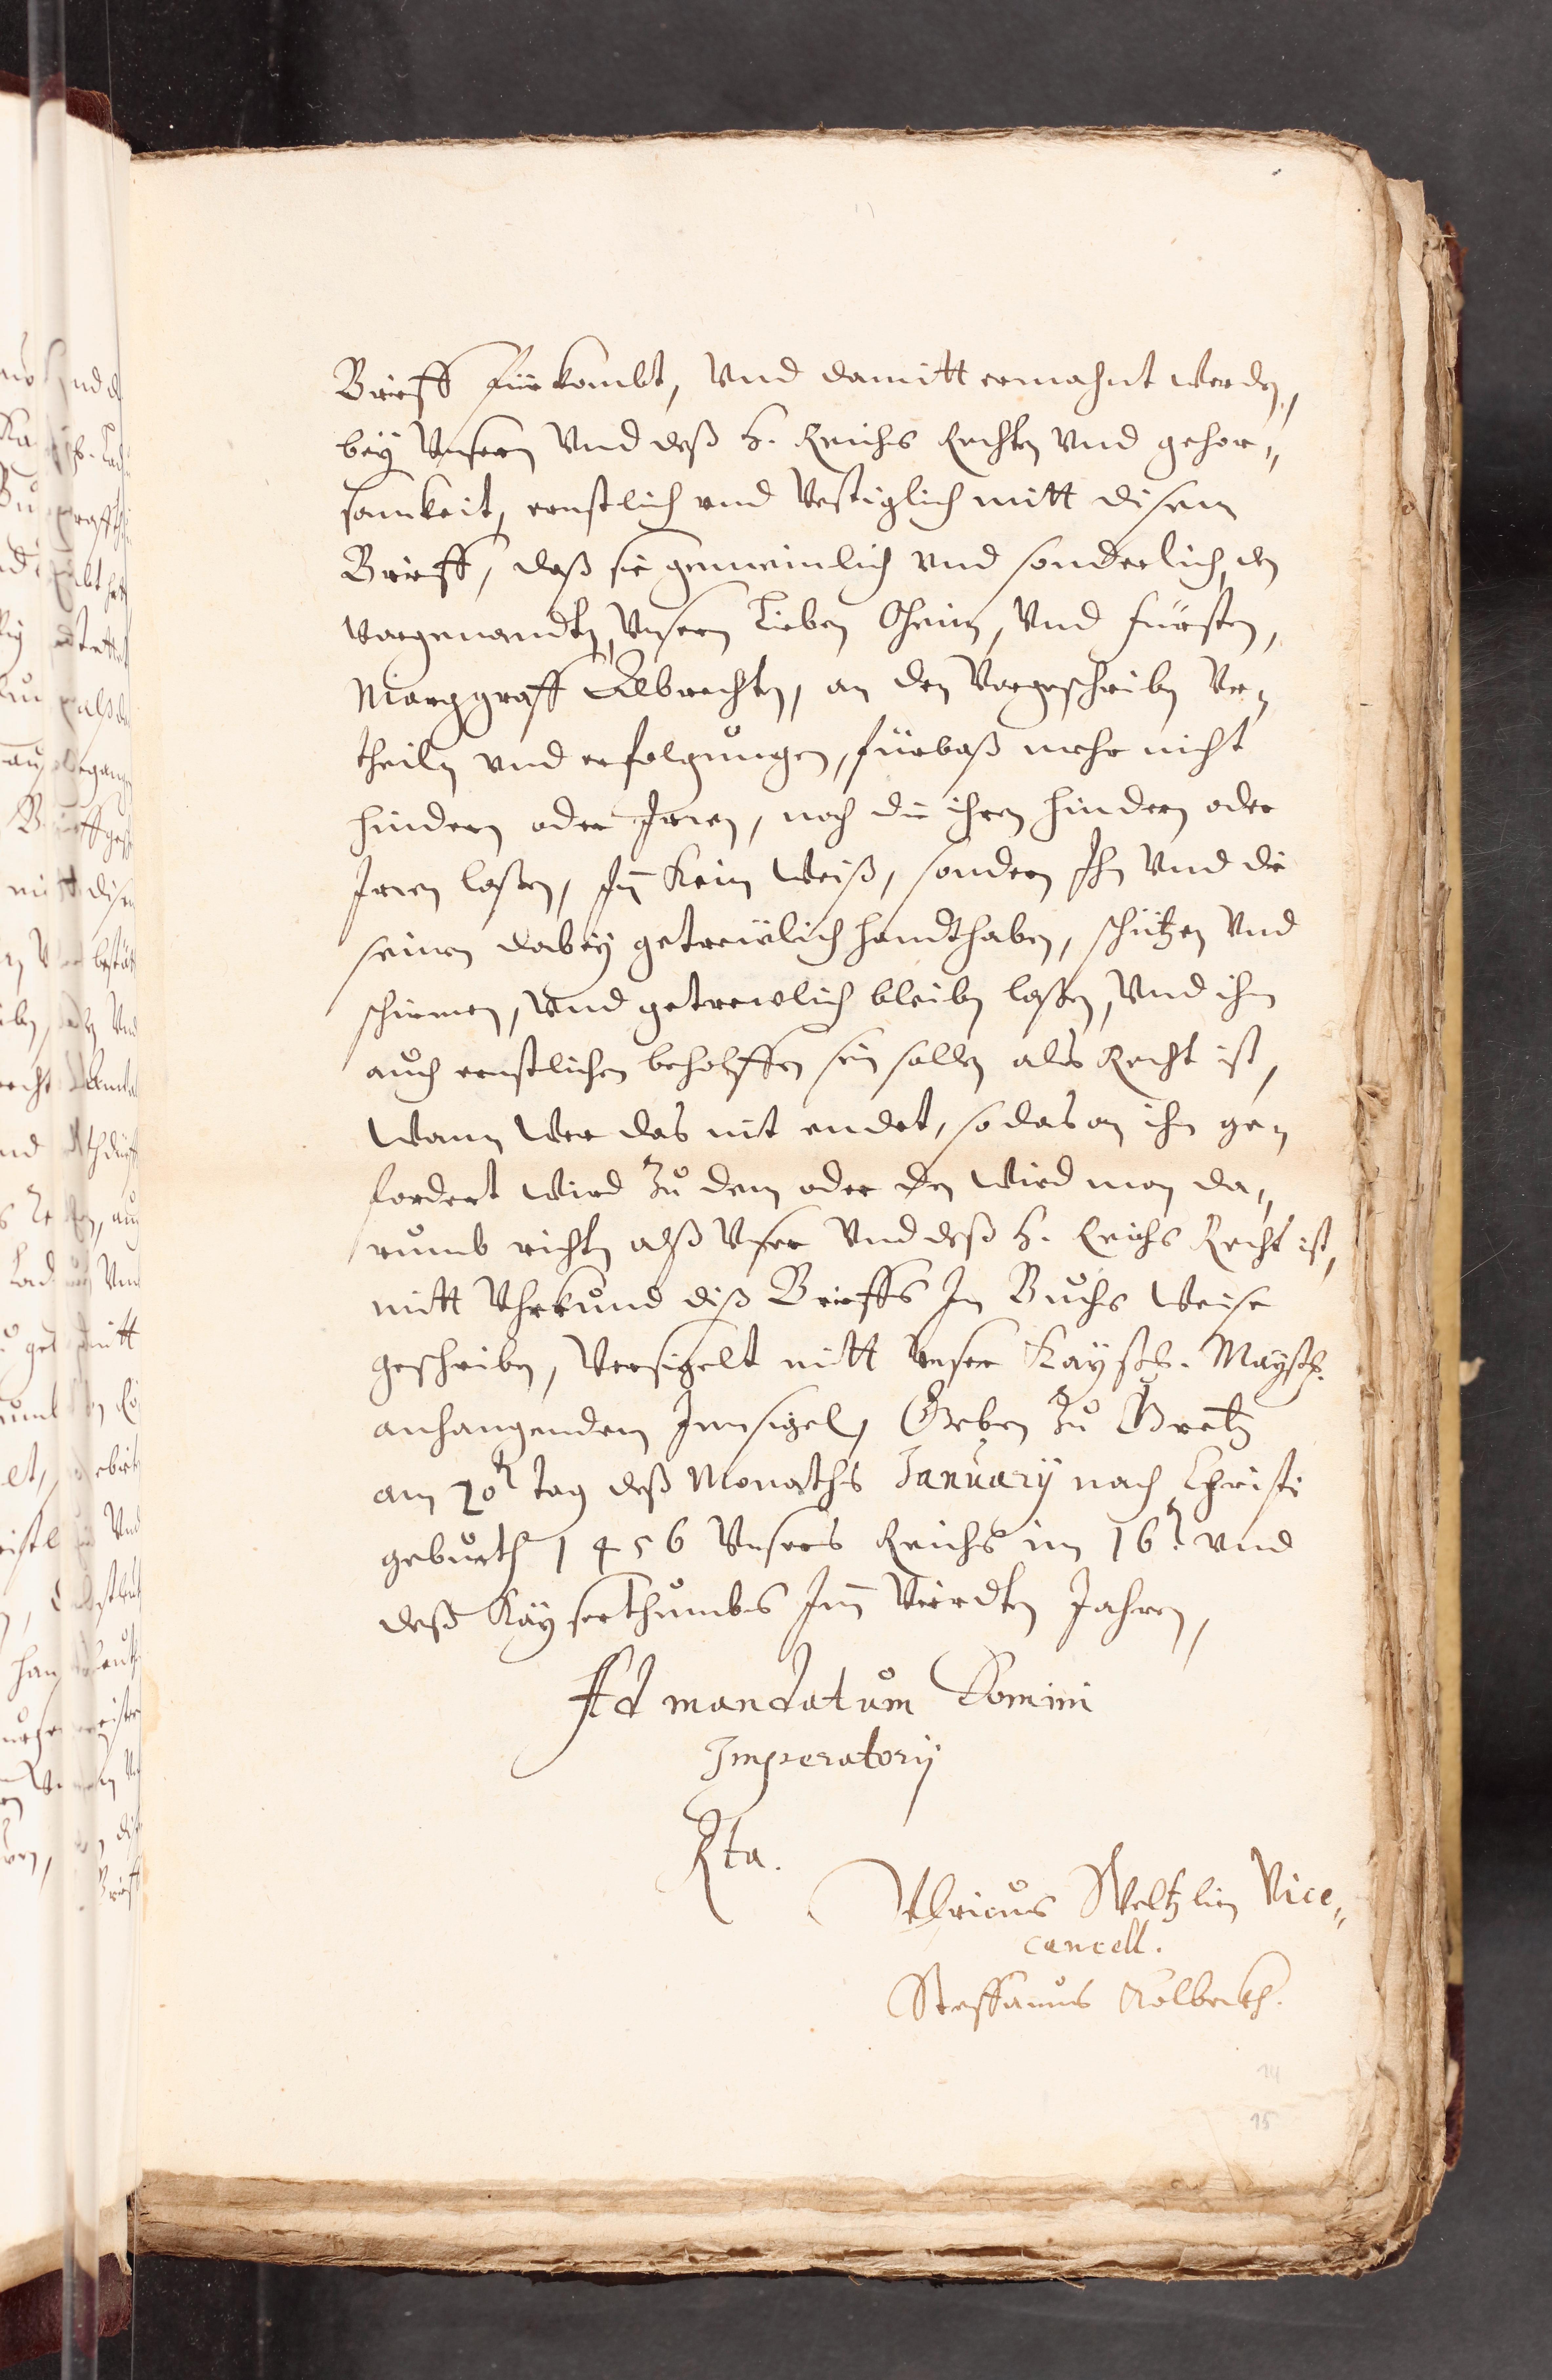 Brieff fürkombt, Vnd damitt ermahnt werden,
bey Vnsern Vnd deß H. Reichs Rechten Vnd gehor„
samkeit, ernstlich vnd Vestiglich mitt disem
Brieff, daß sie gemeinlich vnd sonderlich, den
vorgenandten, Vnsern Lieben Oheim, Vnd fürsten,
Marggraff Albrechten, an den Vorgeschriben Vr„
theiln vnd erfolgungen, fürbaß mehr nicht
hindern oder Irren, noch die ihren hindern oder
Irren laßen, In Kein Weiß, sondern Ihn Vnd die
seinen dabey getreülich handthaben, schützen Vnd
schirmen, Vnd getrewlich bleiben laßen, Vnd ihm
auch ernstlichen beholffen sein sollen als Recht ist,
Wann Wer das nit endet, so das an ihn ge„
fordert wird zu dem oder den wird man da„
rumb richten alß Vnser Vnd deß H. Reichs Recht ist,
mitt Vhrkund diß Brieffs In Buchs Weise
geschriben, Versigelt mitt Vnser Kayßl. Mayst.
anhangendem Innsigel, Geben zu Gretz
am 20t tag deß Monaths January nach Christi
geburth 1456 Vnsers Reichs im 16t vnd
deß Kayserthumbs Im Vierdten Jahren,
Ad mandatum Domini
Imperatorij
Rta.
Vlricus Weltzlin Vice„
cancell.
Steffanus Kolbeckh.
14
15